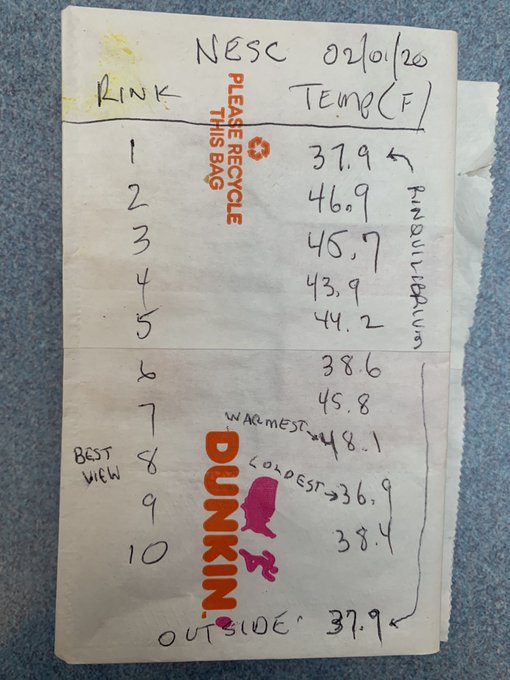 NESC 02/01/20
RINK TEMP(F)
PLEASE RECYCLE
THIS BAG
1 37.9
2 46.9
3 45.7
4 43.9
5 44.2
6 38.6
7 45.8
WARMEST
BEST
VIEW
8 48.1
COLDEST
9 36.9
10 38.4
RINQUILIBRIUM
DUNKIN.
OUTSIDE: 37.9